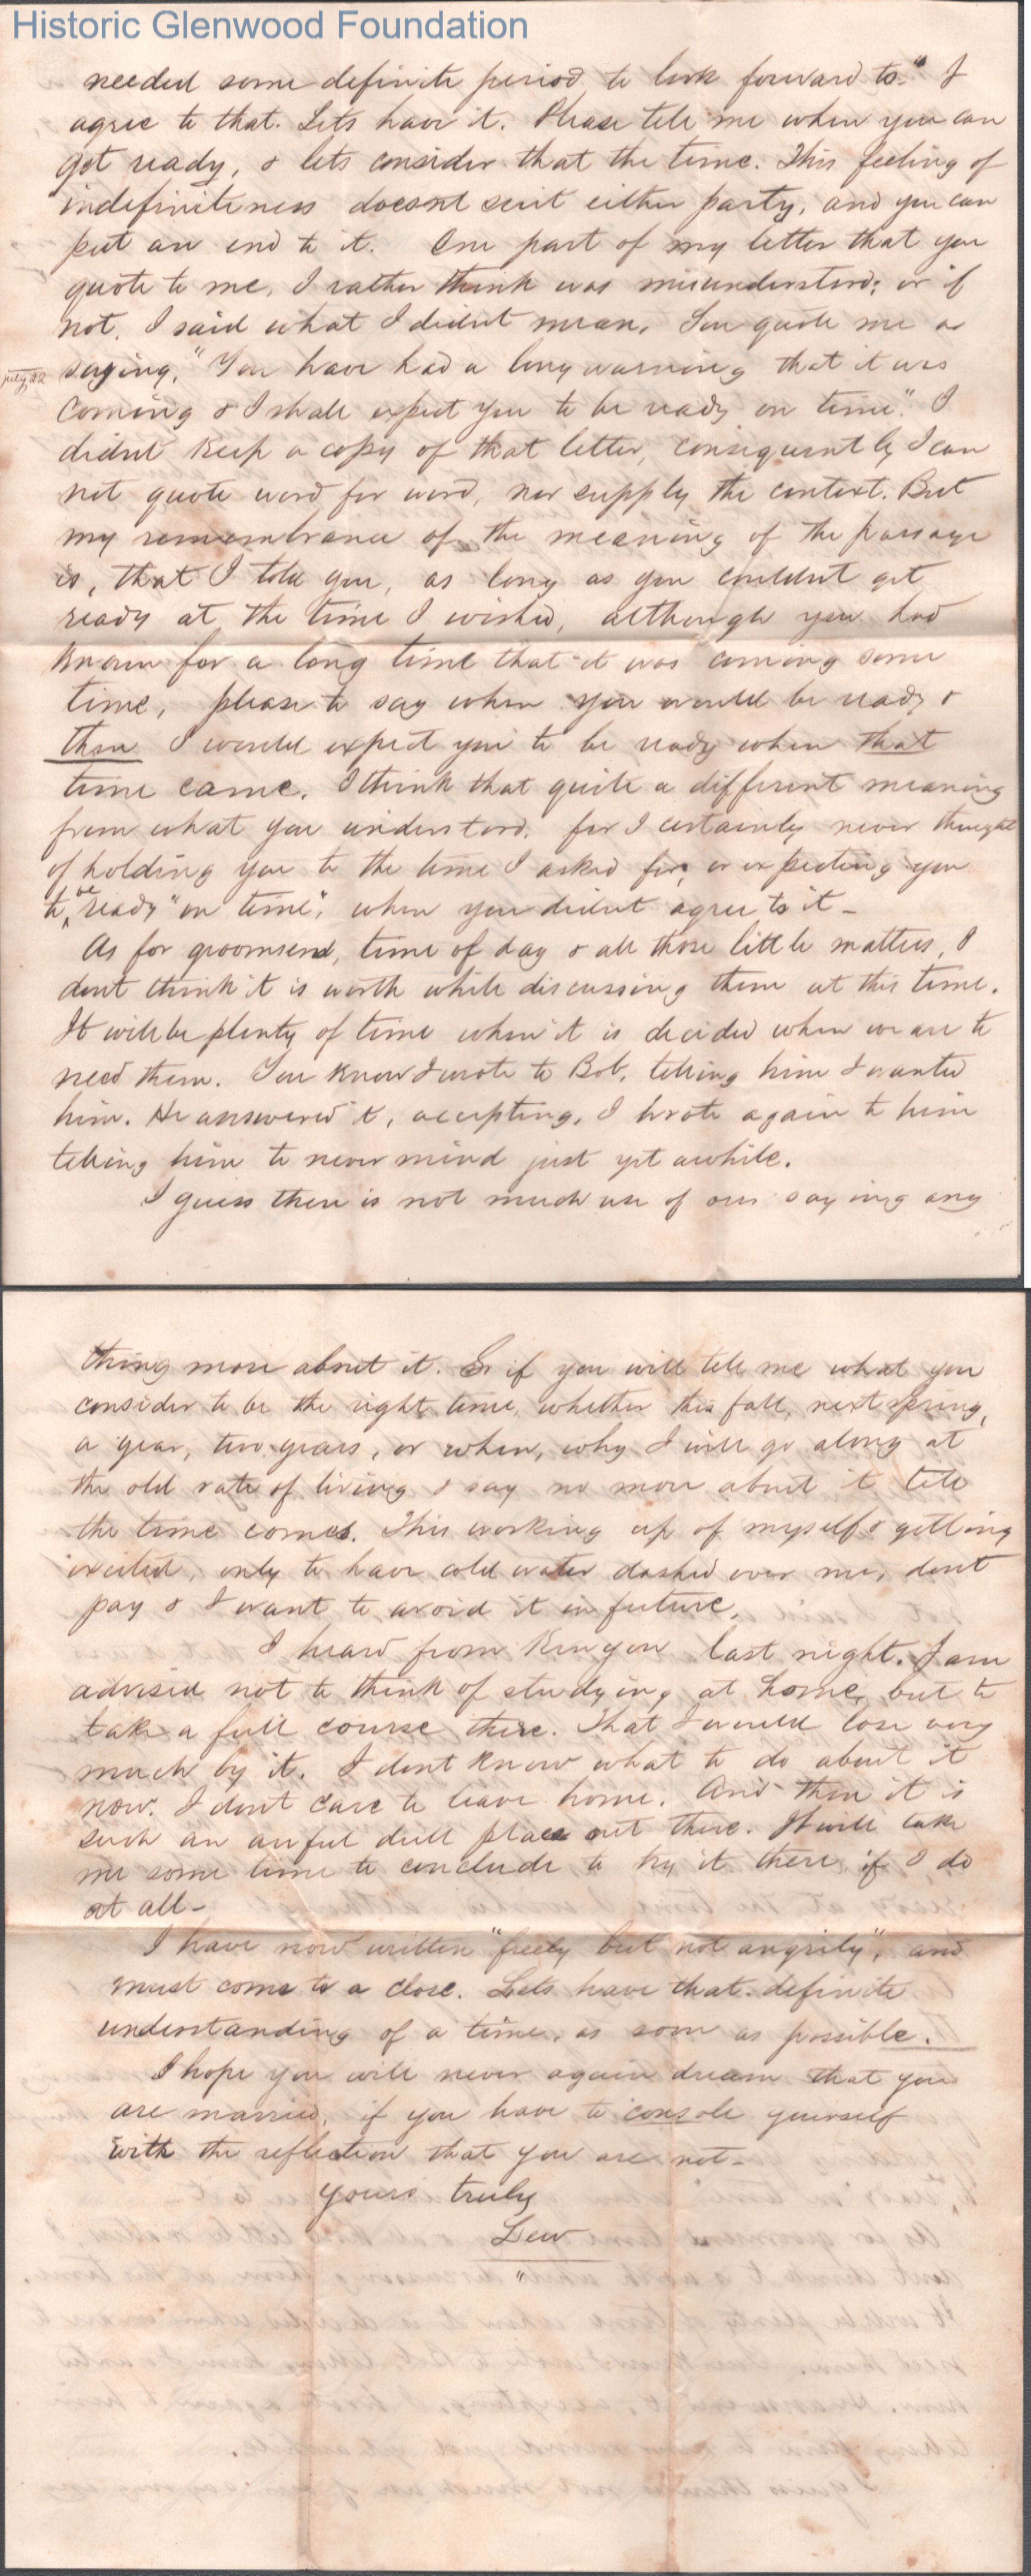 Historic Glenwood Foundation
needed some definite period to look forward to." I
agree to that. Lets have it. Please tell me when you can
get ready, & lets consider that the time. This feeling of
indefiniteness doesnt suit either party, and you can
put an end to it. One part of my letter that you
quote to me, I rather think was misunderstood; or if
not, I said what I didnt mean. You quote me as
july 22
saying, "You have had a long warning that it was
coming & I shall expect you to be ready on time". I
didnt keep a copy of that letter, consequently I can
not quote word for word, nor supply the context. But
my remembrance of the meaning of the passage
is, that I told you, as long as you couldnt get
ready at the time I wished, although you had
known for a long time that it was coming some
time, please to say when you would be ready &
then I would expect you to be ready when that
time came. I think that quite a different meaning
from what you understood, for I certainly never thought
of holding you to the time I asked for, or expecting you
to be ready "on time", when you didnt agree to it -
As for groomsend, time of day & all those little matters, I
dont think it is worth while discussing them at this time.
It will be plenty of time when it is decided when we are to
need them. You know I wrote to Bob, telling him I wanted
him. He answered it, accepting. I wrote again to him
telling him to never mind just yet awhile.
I guess there is not much use of our saying any
thing more about it. So if you will tell me what you
consider to be the right time, whether this fall, next spring,
a year, two years, or when, why I will go along at
the old rate of living & say no more about it till
the time comes. This working up of myself & getting
excited, only to have cold water dashed over me, dont
pay & I want to avoid it in future.
I heard from Kenyon last night. I am
advised not to think of studying at home, but to
take a full course there. That I would lose very
much by it. I dont know what to do about it
now. I dont care to leave home. And then it is
such an awful dull place out there. It will take
me some time to conclude to try it there, if I do
at all -
I have now written "freely but not angrily", and
must come to a close. Lets have that definite
understanding of a time, as soon as possible.
I hope you will never again dream that you
are married, if you have to console yourself
with the reflection that you are not -
Yours truly
Lew
"